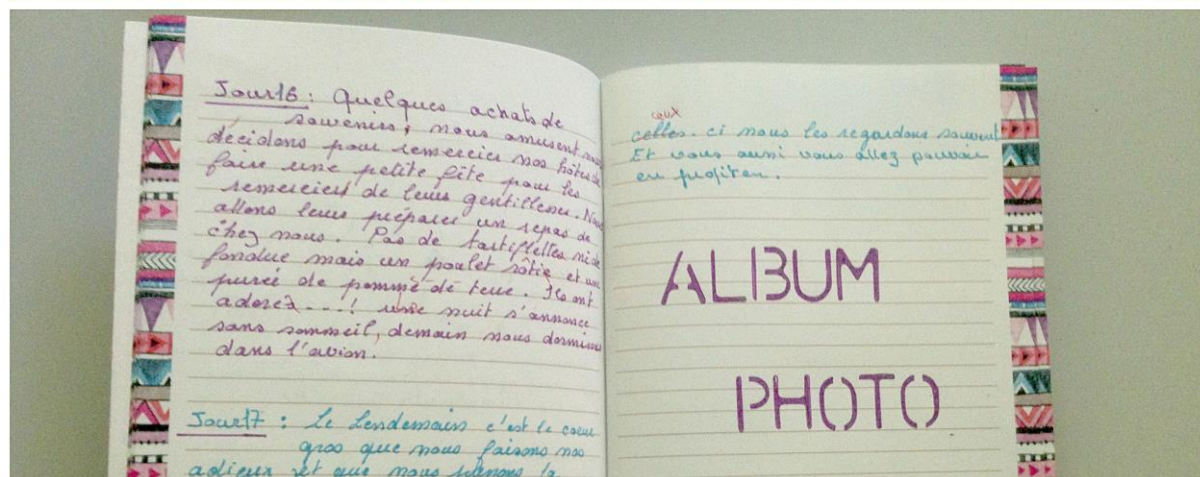 Jour16 : Quelques achats de
souvenirs, nous amusent nous
décidons pour remercier nos hôtes de
faire une petite fête pour les
remerciers de leurs gentillesses. Nous
allons leurs préparer un repas de
chez nous. Pas de tartiflelles ni de
fondue mais un poulet rôtie et une
purée de pomme de terre. Ils ont
adorez ---! une nuit s'annonce
sans sommeil, demain nous dormirons
dans l'avion.
Jour17 : Le lendemain c'est le cœur
gros que nous faisons nos
adieux et que nous prenons la
ceux
celles. ci nous les regardons souvent
Et vous aussi vous allez pouvoir
en profiter.
ALBUM
PHOTO